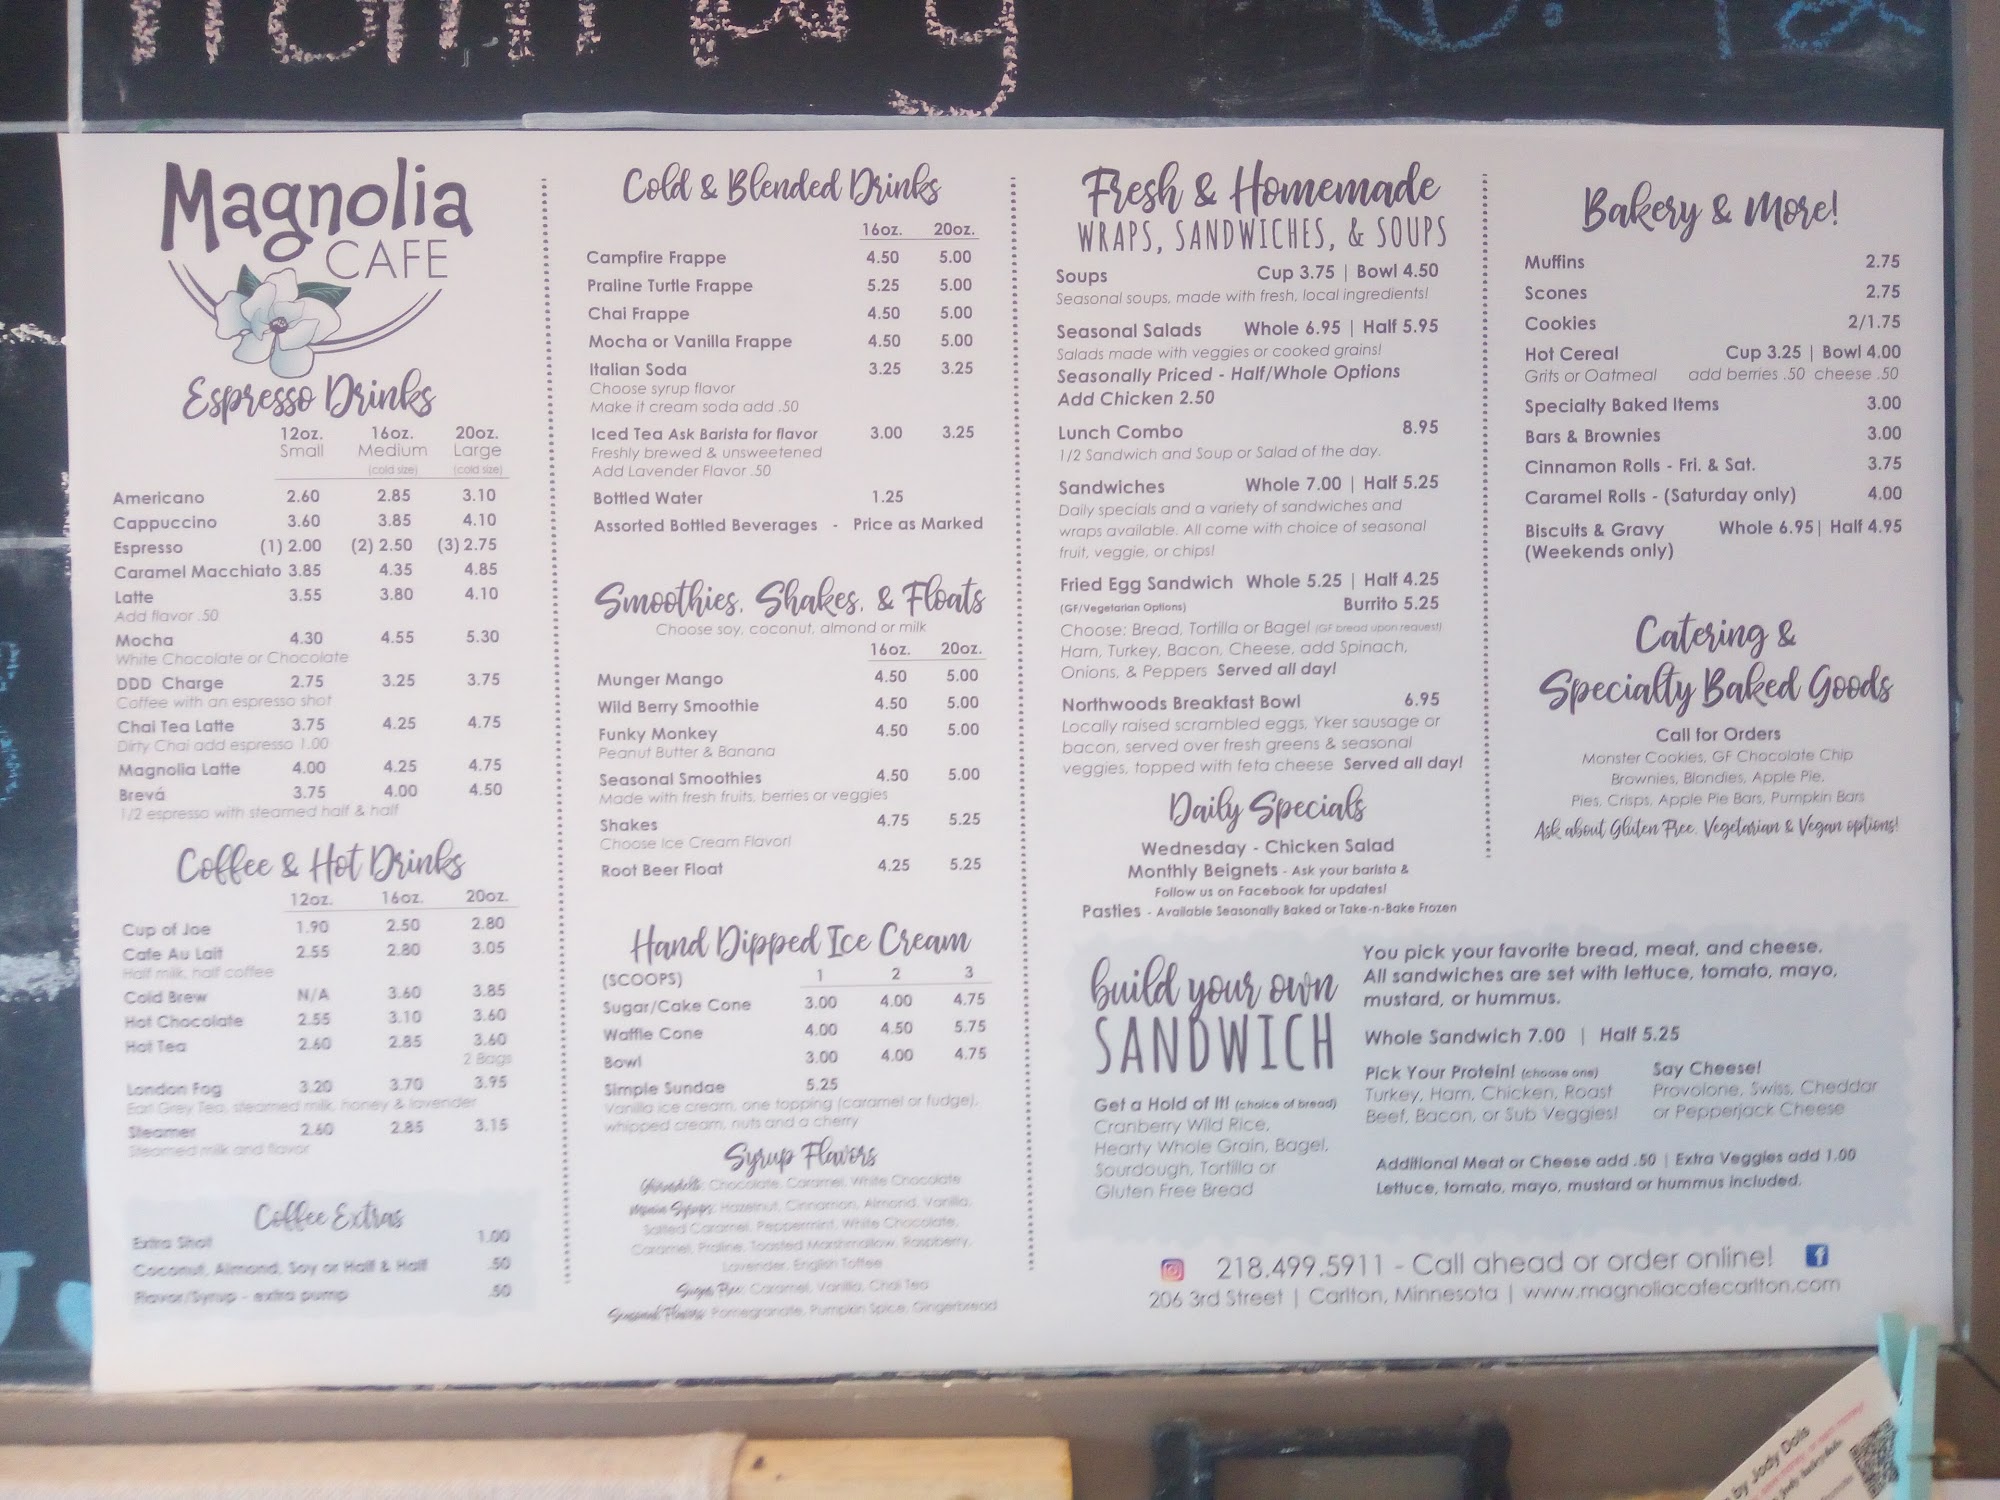 Magnolia
CAFE
Espresso Drinks
12oz. 16oz. 20oz.
Small Medium Large
(cold size) (cold size)
Americano 2.60 2.85 3.10
Cappuccino 3.60 3.85 4.10
Espresso (1) 2.00 (2) 2.50 (3) 2.75
Caramel Macchiato 3.85 4.35 4.85
Latte 3.55 3.80 4.10
Add flavor .50
Mocha 4.30 4.55 5.30
White Chocolate or Chocolate
DDD Charge 2.75 3.25 3.75
Coffee with an espresso shot
Chai Tea Latte 3.75 4.25 4.75
Dirty Chai add espresso 1.00
Magnolia Latte 4.00 4.25 4.75
Brevá 3.75 4.00 4.50
1/2 espresso with steamed half & half
Coffee & Hot Drinks
12oz. 16oz. 20oz.
Cup of Joe 1.90 2.50 2.80
Cafe Au Lait 2.55 2.80 3.05
Half milk, half coffee
Cold Brew N/A 3.60 3.85
Hot Chocolate 2.55 3.10 3.60
Hot Tea 2.60 2.85 3.60
2 Bags
London Fog 3.20 3.70 3.95
Earl Grey Tea, steamed milk, honey & lavender
Steamer 2.60 2.85 3.15
Steamed milk and flavor
Coffee Extras
Extra Shot 1.00
Coconut, Almond, Soy or Half & Half .50
Flavor/Syrup - extra pump .50
Cold & Blended Drinks
16oz. 20oz.
Campfire Frappe 4.50 5.00
Praline Turtle Frappe 5.25 5.00
Chai Frappe 4.50 5.00
Mocha or Vanilla Frappe 4.50 5.00
Italian Soda 3.25 3.25
Choose syrup flavor
Make it cream soda add .50
Iced Tea Ask Barista for flavor 3.00 3.25
Freshly brewed & unsweetened
Add Lavender Flavor .50
Bottled Water 1.25
Assorted Bottled Beverages - Price as Marked
Smoothies, Shakes, & Floats
Choose soy, coconut, almond or milk
16oz. 20oz.
Munger Mango 4.50 5.00
Wild Berry Smoothie 4.50 5.00
Funky Monkey 4.50 5.00
Peanut Butter & Banana
Seasonal Smoothies 4.50 5.00
Made with fresh fruits, berries or veggies
Shakes 4.75 5.25
Choose Ice Cream Flavor!
Root Beer Float 4.25 5.25
Hand Dipped Ice Cream
(SCOOPS) 1 2 3
Sugar/Cake Cone 3.00 4.00 4.75
Waffle Cone 4.00 4.50 5.75
Bowl 3.00 4.00 4.75
Simple Sundae 5.25
Vanilla ice cream, one topping (caramel or fudge),
whipped cream, nuts and a cherry
Syrup Flavors
Ghirardelli: Chocolate, Caramel, White Chocolate
Syrups: Hazelnut, Cinnamon, Almond, Vanilla,
Salted Caramel, Peppermint, White Chocolate,
Caramel, Praline, Toasted Marshmallow, Raspberry,
Lavender, English Toffee
Sugar Free: Caramel, Vanilla, Chai Tea
Seasonal Flavors: Pomegranate, Pumpkin Spice, Gingerbread
Fresh & Homemade
WRAPS, SANDWICHES, & SOUPS
Soups Cup 3.75 | Bowl 4.50
Seasonal soups, made with fresh, local ingredients!
Seasonal Salads Whole 6.95 | Half 5.95
Salads made with veggies or cooked grains!
Seasonally Priced - Half/Whole Options
Add Chicken 2.50
Lunch Combo 8.95
1/2 Sandwich and Soup or Salad of the day.
Sandwiches Whole 7.00 | Half 5.25
Daily specials and a variety of sandwiches and
wraps available. All come with choice of seasonal
fruit, veggie, or chips!
Fried Egg Sandwich Whole 5.25 | Half 4.25
(GF/Vegetarian Options) Burrito 5.25
Choose: Bread, Tortilla or Bagel (GF bread upon request)
Ham, Turkey, Bacon, Cheese, add Spinach,
Onions, & Peppers Served all day!
Northwoods Breakfast Bowl 6.95
Locally raised scrambled eggs, Yker sausage or
bacon, served over fresh greens & seasonal
veggies, topped with feta cheese Served all day!
Daily Specials
Wednesday - Chicken Salad
Monthly Beignets - Ask your barista &
Follow us on Facebook for updates!
Pasties - Available Seasonally Baked or Take-n-Bake Frozen
Bakery & More!
Muffins 2.75
Scones 2.75
Cookies 2/1.75
Hot Cereal Cup 3.25 | Bowl 4.00
Grits or Oatmeal add berries .50 cheese .50
Specialty Baked Items 3.00
Bars & Brownies 3.00
Cinnamon Rolls - Fri. & Sat. 3.75
Caramel Rolls - (Saturday only) 4.00
Biscuits & Gravy Whole 6.95| Half 4.95
(Weekends only)
Catering &
Specialty Baked Goods
Call for Orders
Monster Cookies, GF Chocolate Chip
Brownies, Blondies, Apple Pie,
Pies, Crisps, Apple Pie Bars, Pumpkin Bars
Ask about Gluten Free, Vegetarian & Vegan options!
build your own
SANDWICH
You pick your favorite bread, meat, and cheese.
All sandwiches are set with lettuce, tomato, mayo,
mustard, or hummus.
Whole Sandwich 7.00 | Half 5.25
Get a Hold of It! (choice of bread)
Cranberry Wild Rice,
Hearty Whole Grain, Bagel,
Sourdough, Tortilla or
Gluten Free Bread
Pick Your Protein! (choose one)
Turkey, Ham, Chicken, Roast
Beef, Bacon, or Sub Veggies!
Say Cheese!
Provolone, Swiss, Cheddar
or Pepperjack Cheese
Additional Meat or Cheese add .50 | Extra Veggies add 1.00
Lettuce, tomato, mayo, mustard or hummus included.
218.499.5911 - Call ahead or order online!
206 3rd Street | Carlton, Minnesota | www.magnoliacafecarlton.com
by Jody Dolis